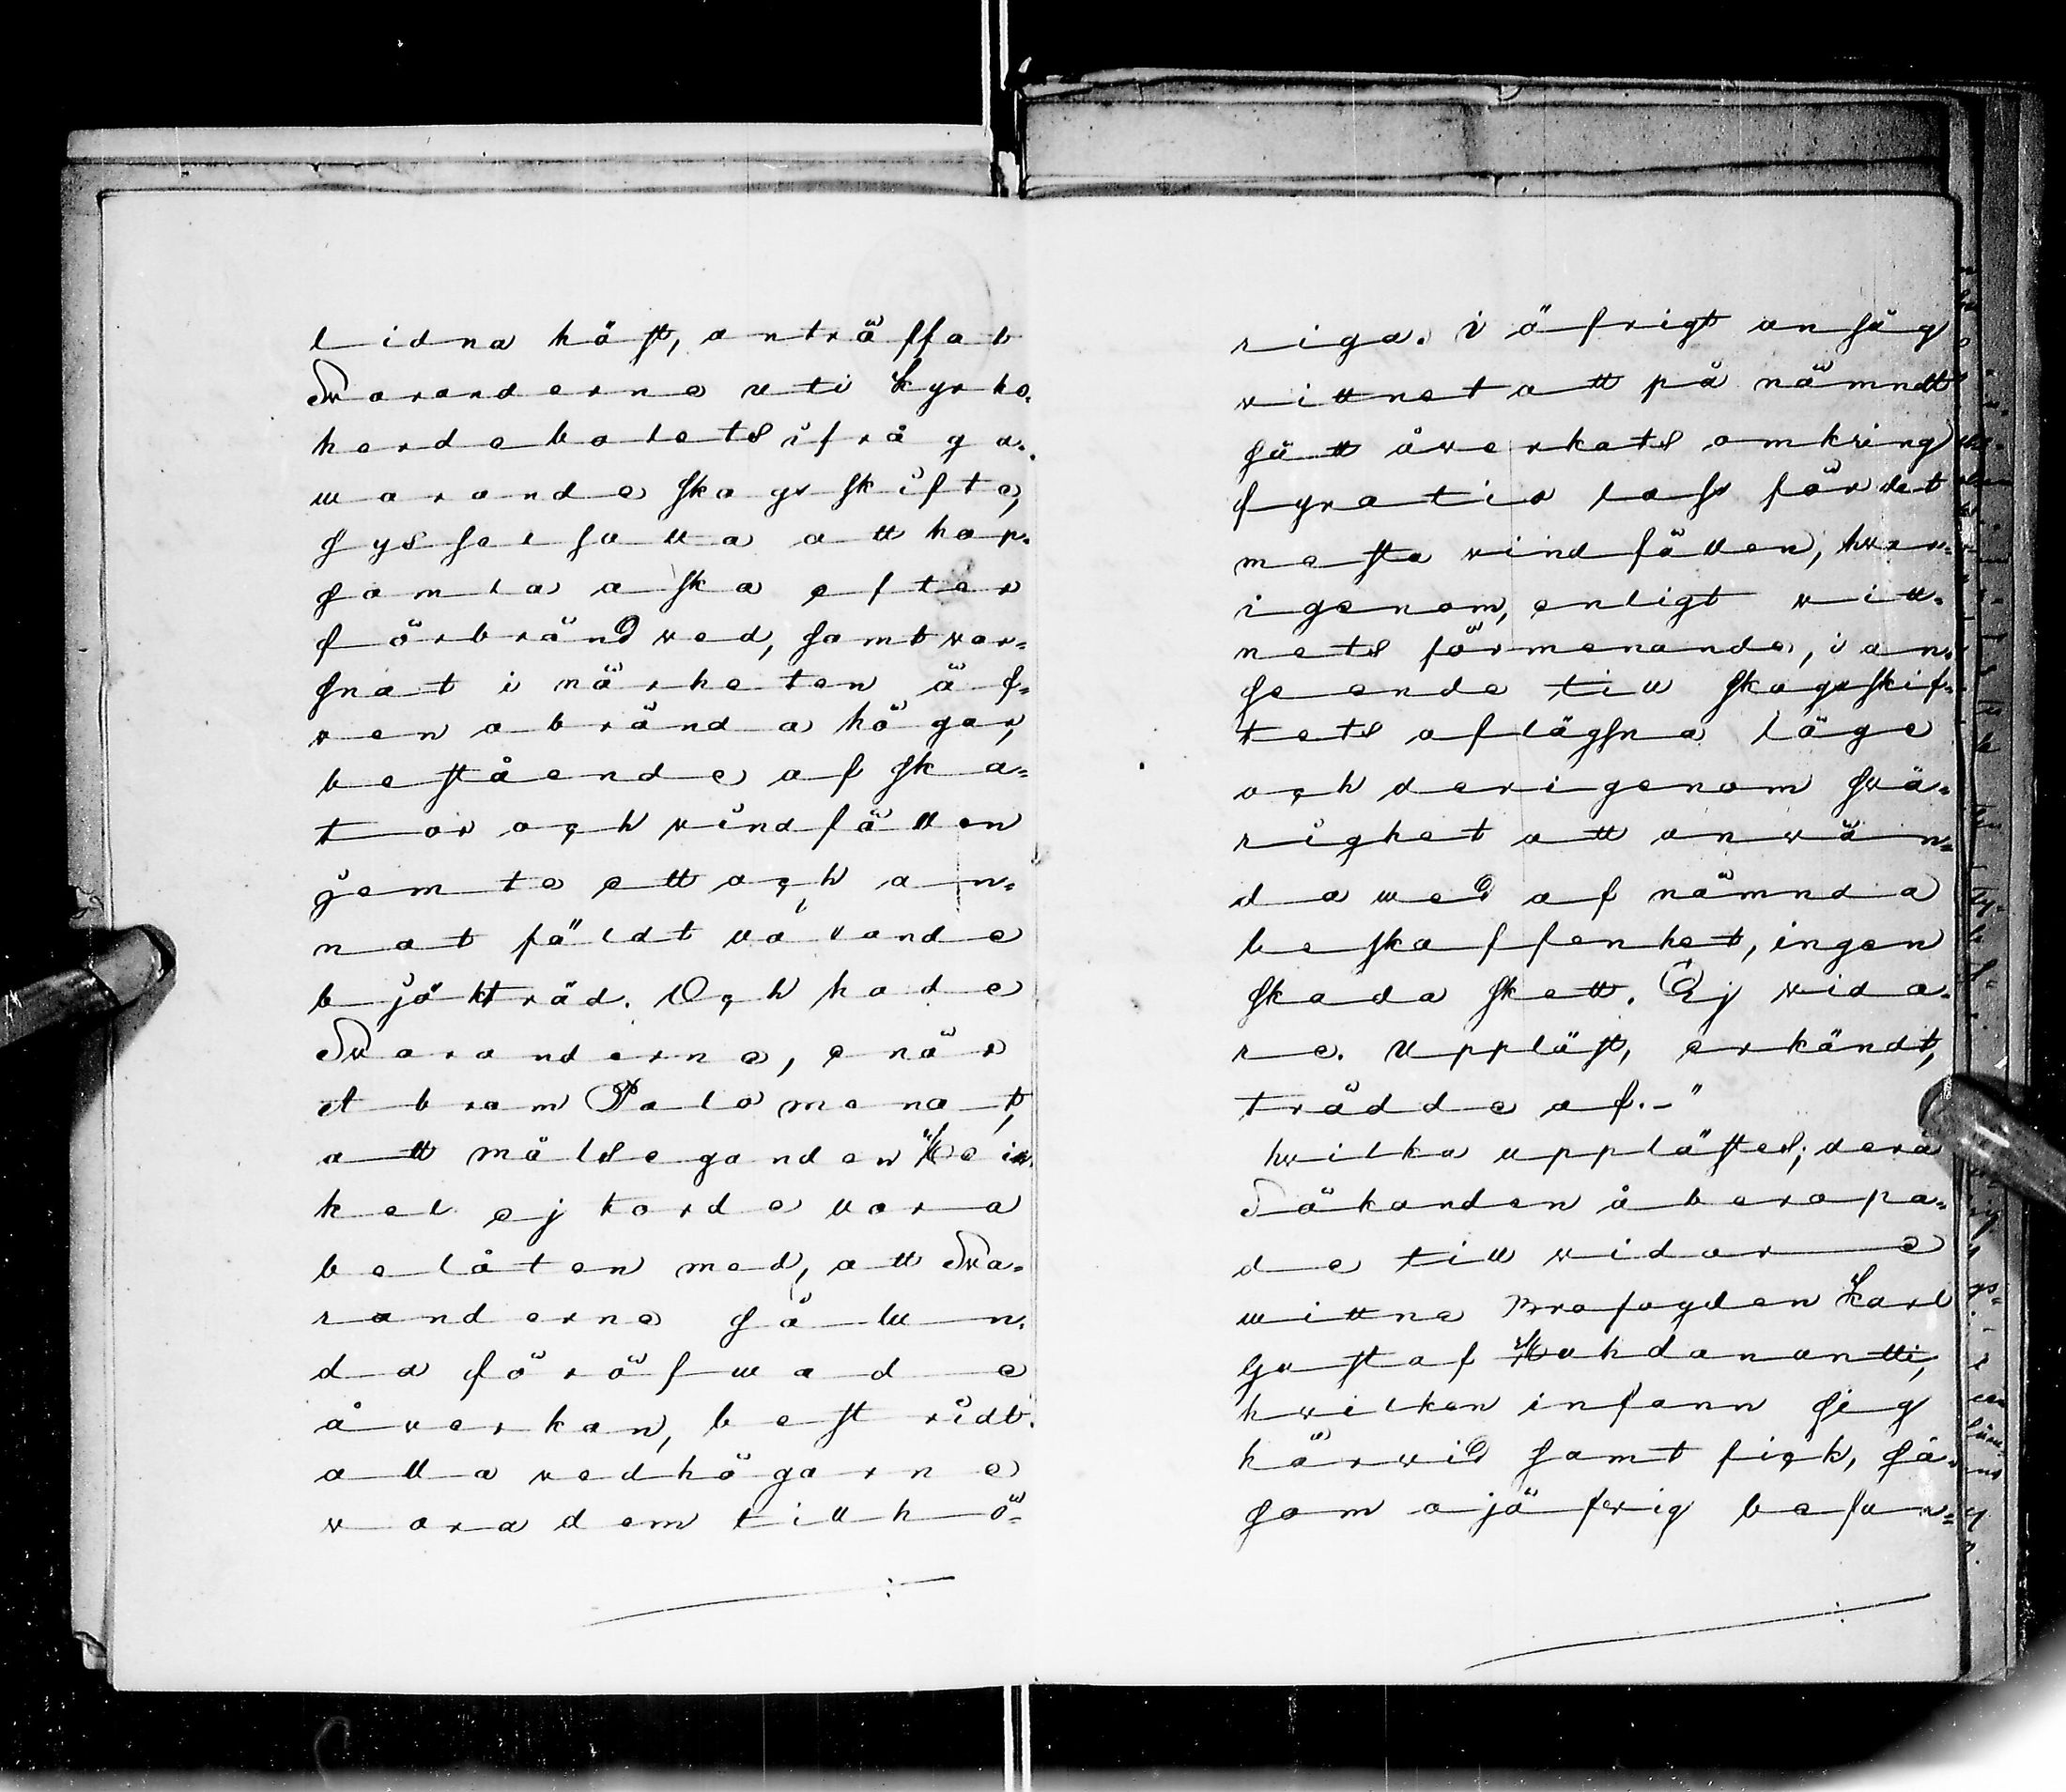 lidna höst, anträffat
Svaranderne uti Kyrko-
herdebolets ifrå ga-
warande skogsskifte,
sysselsatta att hop-
samla aska efter
förbränd wed, samt war-
snat i närheten äf-
ven obrända högar,
bestående af ska-
tor och vindfällen
jemte ett och an-
nat fäldt vå vande
björkträd. Och hade
Svaranderne, enär
Abram Palo menat,
att målseganden Hei-
kel ej torde vara
belåten med, att Swa-
randerne sålun-
da föröfwade
åverkan, bestridt
alla vedhögarne
vara dem tillhö-
riga. i öfrigt ansåg
vittnet att på nämndt
sätt åverkats omkring
fyratio lass för det
mesta vindfällen, hvar-
igenom, enligt vitt-
nets förmenande, i an-
seende till skogsskif-
tets aflägsna läge
och derigenom svå-
righet att använ-
da wed af nämnda
beskaffenhet, ingen
skada skett. Ej vida-
re. Uppläst, erkändt,
trädde af.-"
hvilka upplästes; derå
Sökanden åberopa-
de till vidare
wittne Brofogden Karl
Gustaf
hvilken infann sig
härvid samt fick, så-
som ojäfvig befun-